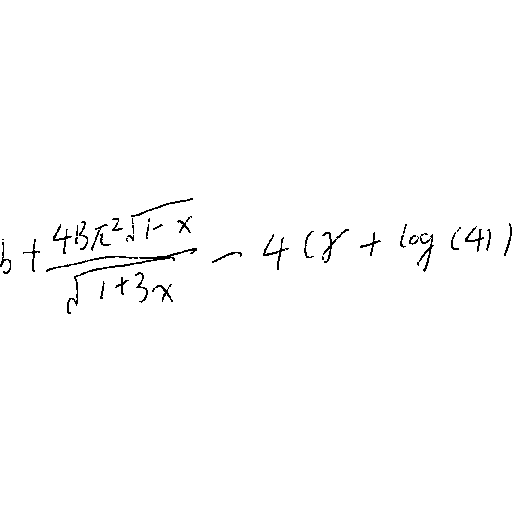 b + \frac{4B\pi^2\sqrt{1-x}}{\sqrt{1+3x}} - 4(\gamma + \log(4))